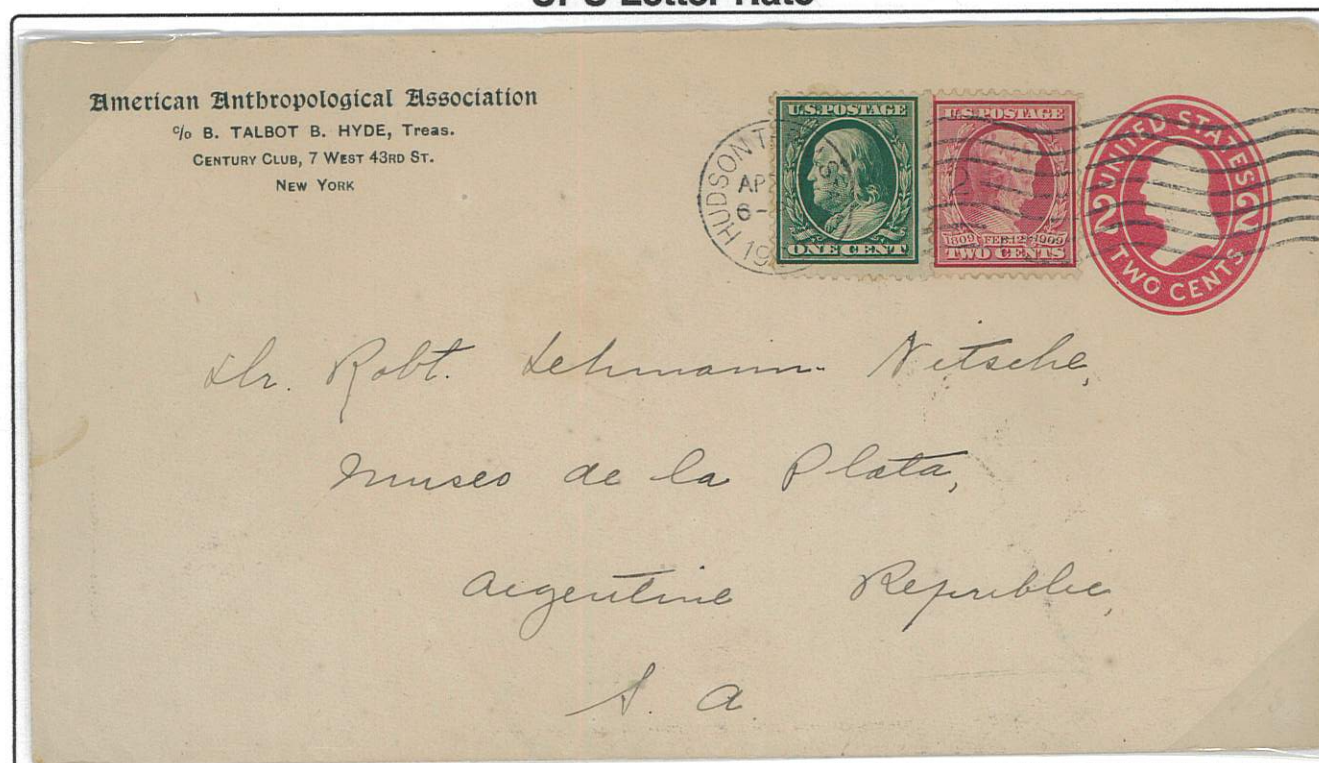 UPU Letter Rate
American Anthropological Association
c/o B. TALBOT B. HYDE, Treas.
CENTURY CLUB, 7 WEST 43RD ST.
NEW YORK
HUDSON T
AP
6-
19
STA
U.S. POSTAGE
ONE CENT
U.S. POSTAGE
1809 FEB. 12 1909
TWO CENTS
UNITED STATES
2 2
TWO CENTS
Dr. Robt. Lehmann-Nitsche,
Museo de la Plata,
Argentine Republic,
S. A.